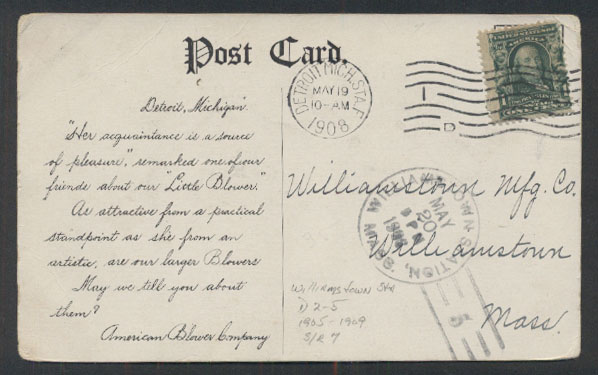 Post Card.
Detroit, Michigan.
"Her acquaintance is a source
of pleasure," remarked one of our
friends about our "Little Blower."
As attractive from a practical
standpoint as she from an
artistic, are our larger Blowers
May we tell you about
them?
American Blower Company
DETROIT, MICH. STA. F.
MAY 19
10-AM
1908
D
Williamstown Mfg. Co.
Williamstown
Mass.
WILLIAMSTOWN STATION, MASS.
MAY
20
1908
5
Williamstown Sta
D 2-5
1905-1909
S/R 7